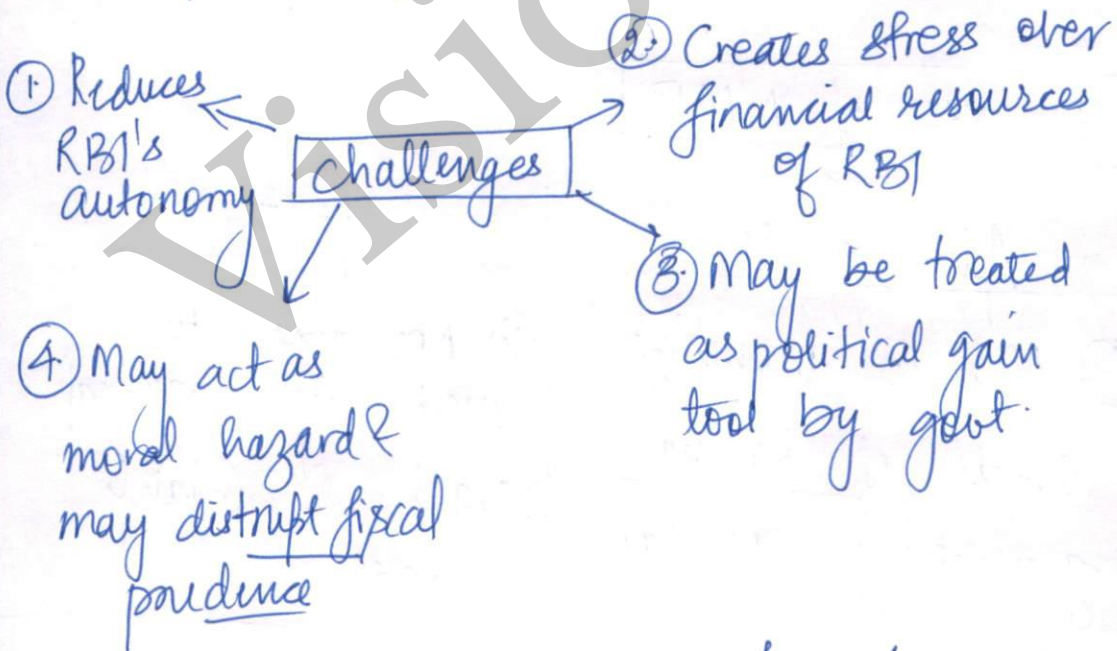 challenges
① Reduces
RBI's
autonomy
②. Creates stress over
financial resources
of RBI
③. May be treated
as political gain
tool by govt.
④ May act as
moral hazard &
may distrupt fiscal
prudence
Visio